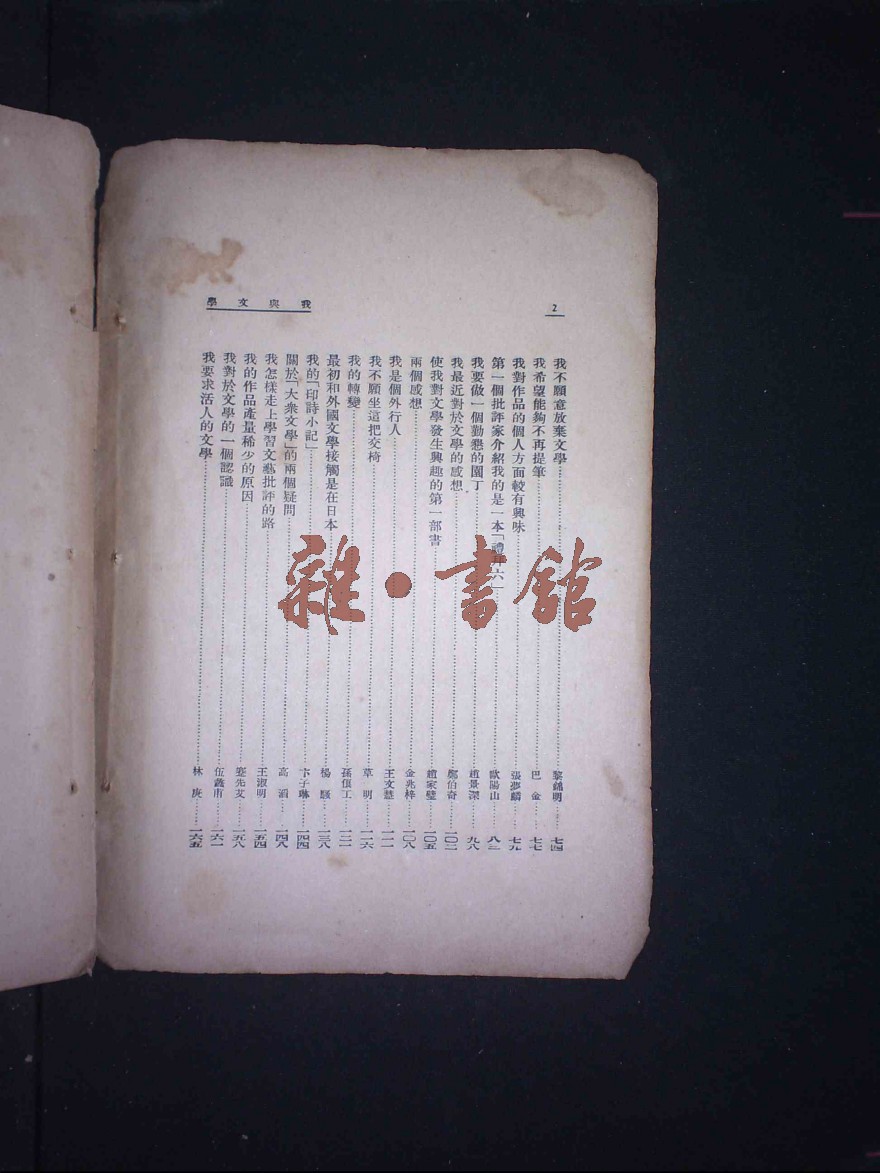 我與文學
2
我不願意放棄文學……黎錦明……七四
我希望能夠不再提筆……巴金……七七
我對作品的個人方面較有興味……張夢麟……七九
第一個批評家介紹我的是一本「禮拜六」……歐陽山……八三
我要做一個勤懇的園丁……趙景深……九八
我最近對於文學的感想……鄭伯奇……一〇二
使我對文學發生興趣的第一部書……趙家璧……一〇五
兩個感想……金兆梓……一〇八
我是個外行人……王文慧……一一一
我不願坐這把交椅……草明……一一六
我的轉變……孫俍工……一二一
最初和外國文學接觸是在日本……楊騷……一三八
我的「印詩小記」……卞子琳……一四四
關於「大衆文學」的兩個疑問……高滔……一四八
我怎樣走上學習文藝批評的路……王淑明……一五四
我的作品產量稀少的原因……蹇先艾……一五八
我對於文學的一個認識……伍蠡甫……一六一
我要求活人的文學……林庚……一六五
雜·書館